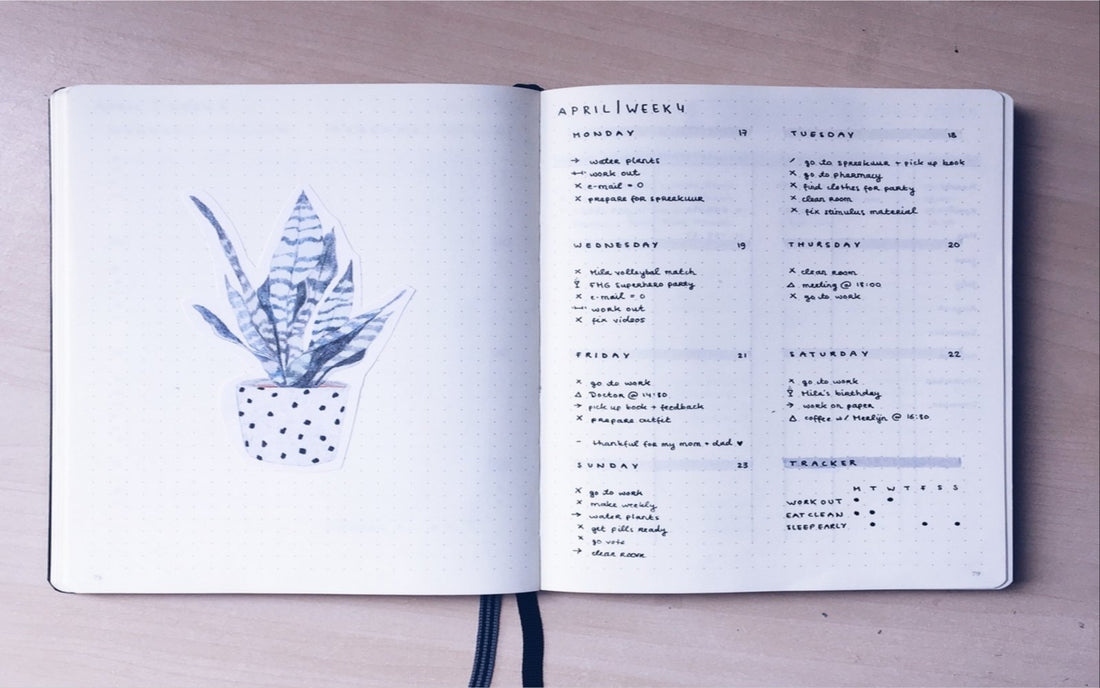 APRIL | WEEK 4
MONDAY 17
→ water plants
work out
× e-mail = 0
× prepare for spreekuur
TUESDAY 18
/ go to spreekuur + pick up book
× go to pharmacy
× find clothes for party
× clean room
× fix stimulus material
WEDNESDAY 19
× Mila volleybal match
FHG Superhero party
× e-mail = 0
work out
× fix videos
THURSDAY 20
× clean room
△ meeting @ 18:00
× go to work
FRIDAY 21
× go to work
△ Doctor @ 14:30
→ pick up book + feedback
× prepare outfit
- thankful for my mom + dad ♥
SATURDAY 22
× go to work
Mila's birthday
→ work on paper
△ coffee w/ Merlijn @ 16:30
SUNDAY 23
× go to work
× make weekly
→ water plants
× get pills ready
× go vote
→ clean room
TRACKER
M T W T F S S
WORK OUT • •
EAT CLEAN • •
SLEEP EARLY • • •
79